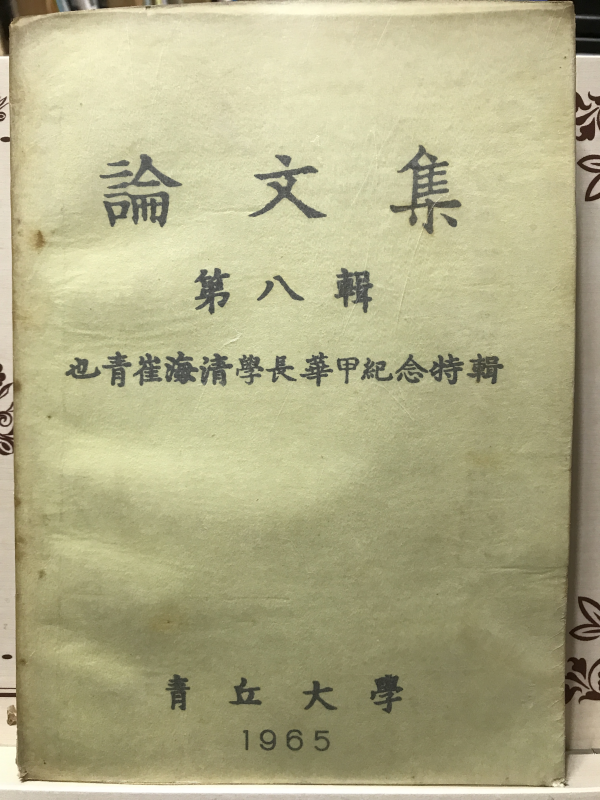 論文集
第八輯
也青崔海清學長華甲紀念特輯
青丘大學
1965